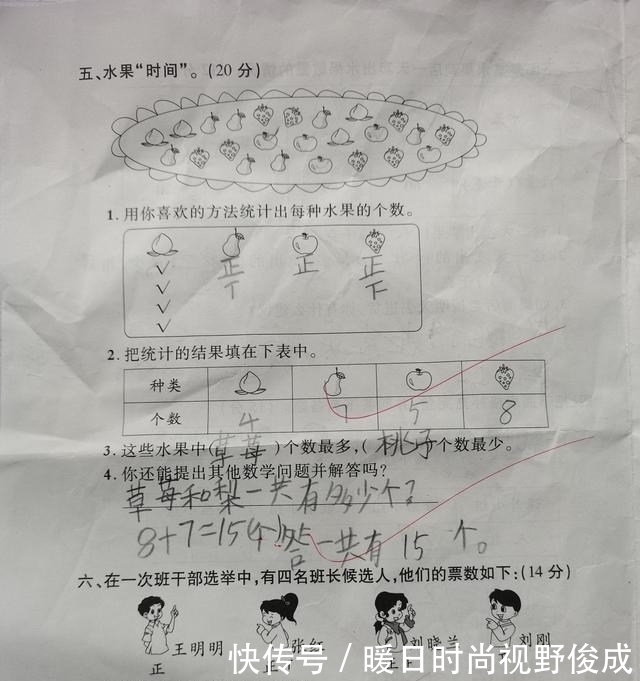 五、水果“时间”。(20分)
1.用你喜欢的方法统计出每种水果的个数。
√ 正 正 正
√ 丅 下
√
√
2.把统计的结果填在下表中。
种类
个数 4 7 5 8
3.这些水果中(草莓)个数最多,(桃子个数最少。
4.你还能提出其他数学问题并解答吗?
草莓和梨一共有多少个?
8+7=15(个)答一共有15个。
六、在一次班干部选举中,有四名班长候选人,他们的票数如下:(14分)
王明明 张红 刘晓兰 刘刚
正
快传号/暖日时尚视野俊成